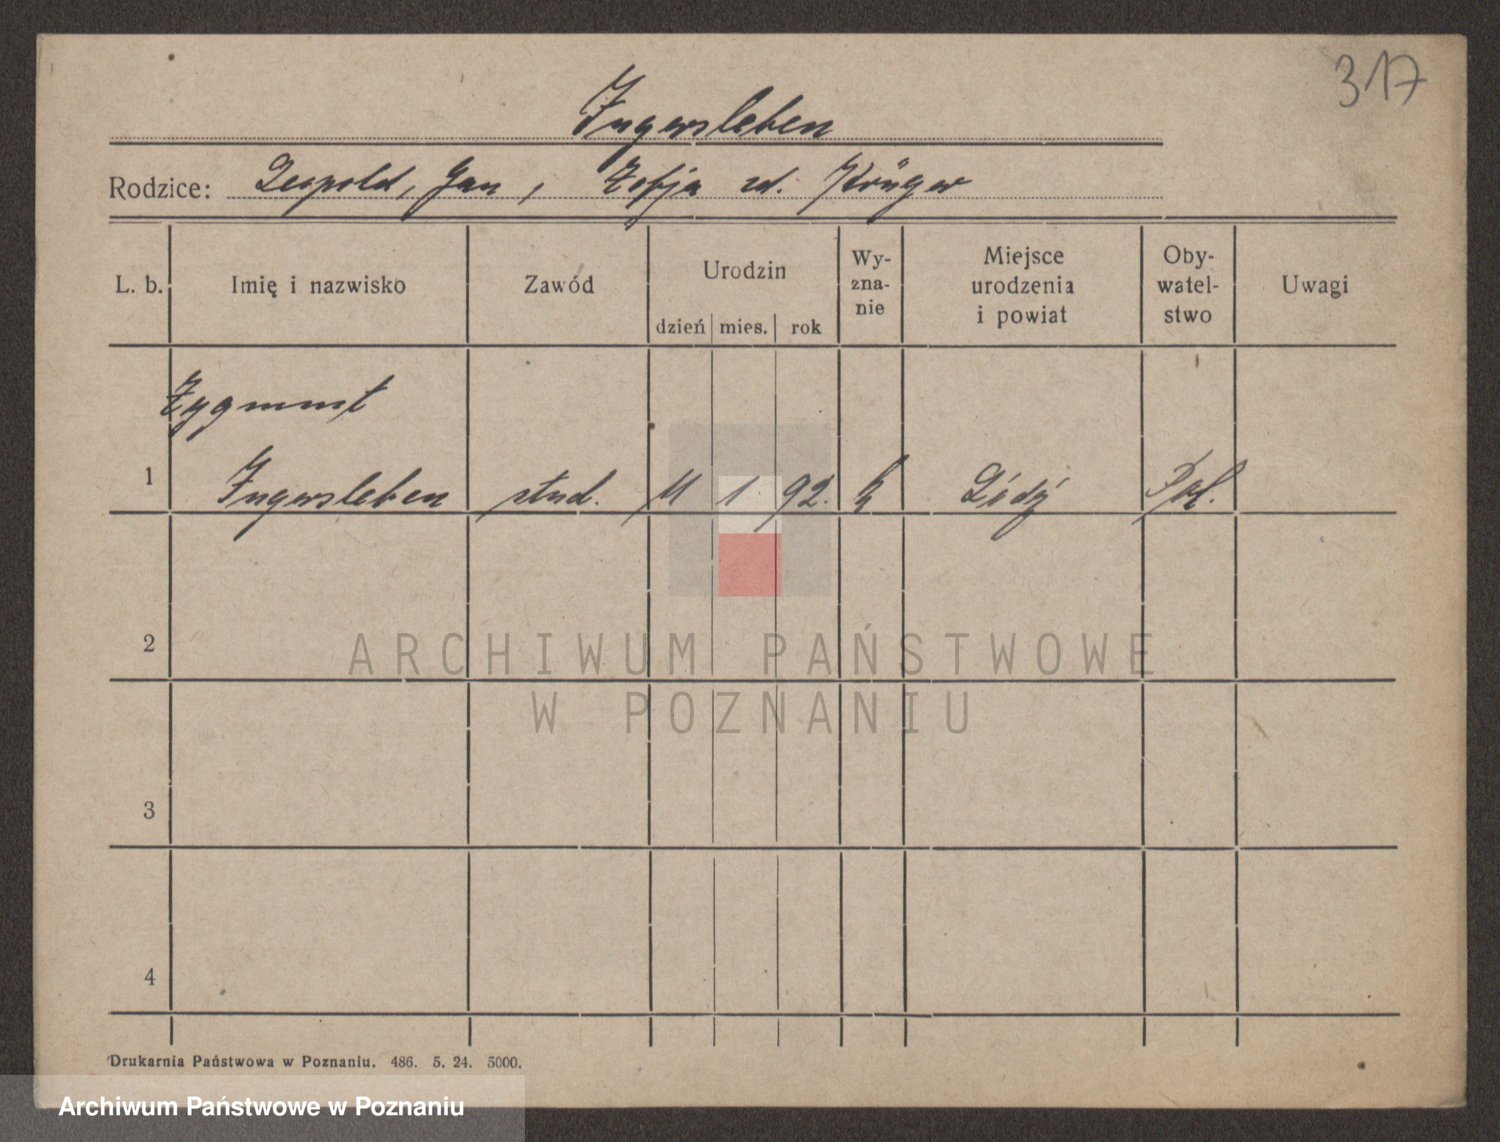 317
Ingersleben
Rodzice: Leopold, Jan, Zofja zd. Krüger
L. b. Imię i nazwisko Zawód Urodzin Wy- Miejsce Oby- Uwagi
zna- urodzenia watel-
nie i powiat stwo
dzień mies. rok
Zygmunt
1 Ingersleben stud. 11 1. 92. Łódź Pol.
2
3
4
ARCHIWUM PAŃSTWOWE
W POZNANIU
Drukarnia Państwowa w Poznaniu. 486. 5. 24. 5000.
Archiwum Państwowe w Poznaniu